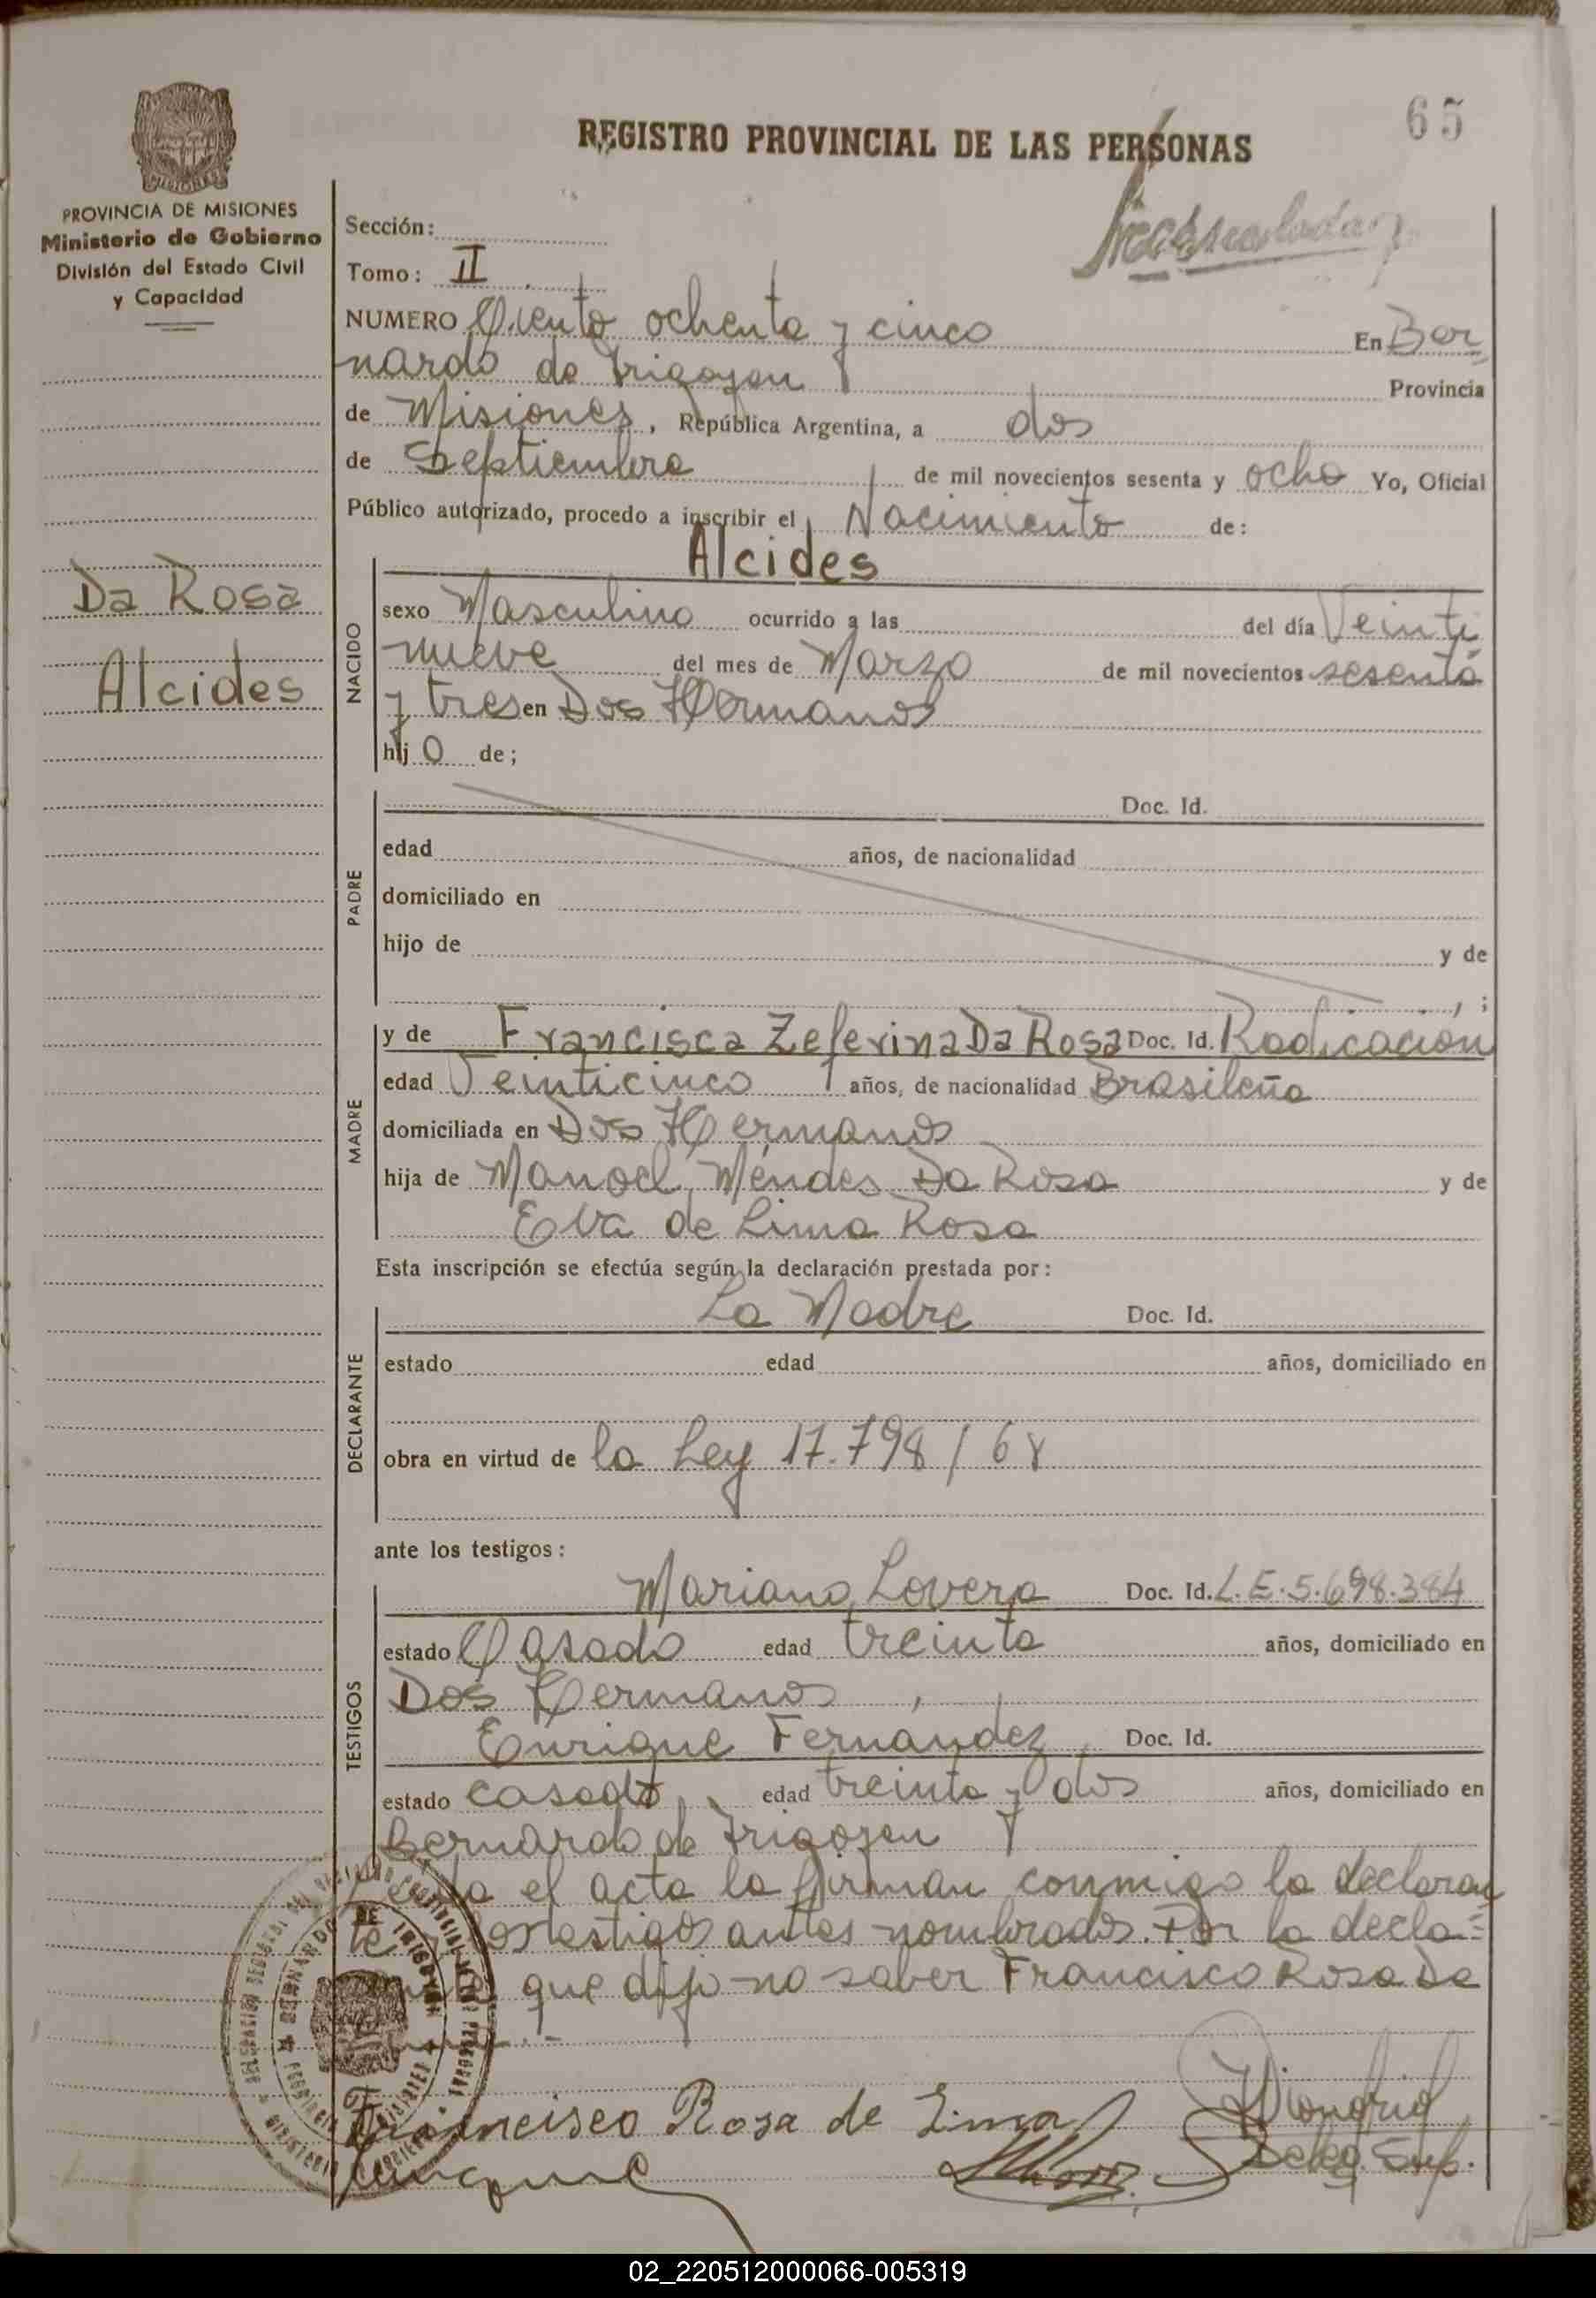 65
REGISTRO PROVINCIAL DE LAS PERSONAS
MISIONES
PROVINCIA DE MISIONES
Ministerio de Gobierno
División del Estado Civil
y Capacidad
Da Rosa
Alcides
Sección:
Tomo: II
NUMERO Ciento ochenta y cinco En Ber
nardo de Irigoyen Provincia
de Misiones, República Argentina, a dos
de Septiembre de mil novecientos sesenta y ocho Yo, Oficial
Público autorizado, procedo a inscribir el Nacimiento de:
Alcides
NACIDO
sexo Masculino ocurrido a las del día Veinti
nueve del mes de Marzo de mil novecientos sesenta
y tres en Dos Hermanos
hijo de;
PADRE
Doc. Id.
edad años, de nacionalidad
domiciliado en
hijo de y de
, ;
MADRE
y de Francisca Zeferina Da Rosa Doc. Id. Radicacion
edad Veinticinco años, de nacionalidad Brasileña
domiciliada en Dos Hermanos
hija de Manoel Mendes Da Rosa y de
Eva de Lima Rosa
Esta inscripción se efectúa según la declaración prestada por:
DECLARANTE
La Madre Doc. Id.
estado edad años, domiciliado en
obra en virtud de la Ley 17.798/68
ante los testigos:
TESTIGOS
Mariano Lovera Doc. Id. L.E.5.698.384
estado Casado edad treinta años, domiciliado en
Dos Hermanos
Enrique Fernandez Doc. Id.
estado casado edad treinta y dos años, domiciliado en
Bernardo de Irigoyen
el acta la firman conmigo la declaran
te testigos antes nombrados. Por la decla=
que dijo no saber Francisco Rosa De
Francisco Rosa de Lima
Deleg. Sup.
02_220512000066-005319